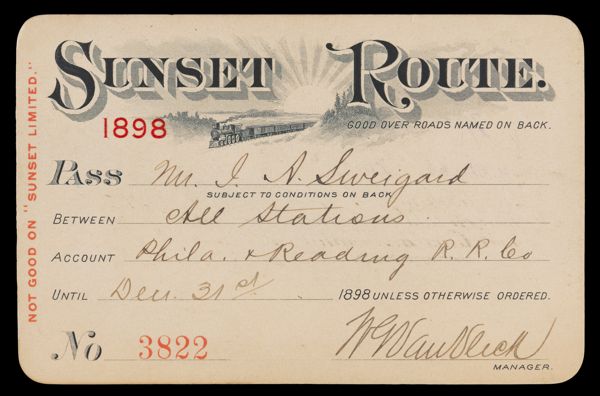 SUNSET ROUTE.
1898
GOOD OVER ROADS NAMED ON BACK.
PASS Mr. I. A. Sweigard
SUBJECT TO CONDITIONS ON BACK
BETWEEN All Stations.
ACCOUNT Phila. & Reading R. R. Co
UNTIL Dec. 31st 1898 UNLESS OTHERWISE ORDERED.
No 3822
W G Van Vleck
MANAGER.
NOT GOOD ON "SUNSET LIMITED."